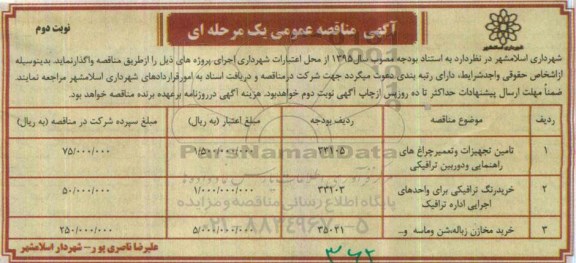 آگهی مناقصه عمومی یک مرحله ای
نوبت دوم
شهرداری اسلامشهر
شهرداری اسلامشهر در نظردارد به استناد بودجه مصوب سال ۱۳۹۵ از محل اعتبارات شهرداری اجرای پروژه های ذیل را ازطریق مناقصه واگذارنماید. بدینوسیله
ازاشخاص حقوقی واجدشرایط، دارای رتبه بندی دعوت میگردد جهت شرکت درمناقصه و دریافت اسناد به امورقراردادهای شهرداری اسلامشهر مراجعه نمایند.
ضمناً مهلت ارسال پیشنهادات حداکثر تا ده روزپس ازچاپ آگهی نوبت دوم خواهدبود. هزینه آگهی درروزنامه برعهده برنده مناقصه خواهد بود.
ردیف موضوع مناقصه ردیف بودجه مبلغ اعتبار (به ریال) مبلغ سپرده شرکت در مناقصه (به ریال)
۱ تامین تجهیزات وتعمیرچراغ های راهنمایی ودوربین ترافیکی ۳۳۱۰۵ ۱/۵۰۰/۰۰۰/۰۰۰ ۷۵/۰۰۰/۰۰۰
۲ خریدرنگ ترافیکی برای واحدهای اجرایی اداره ترافیک ۳۳۱۰۳ ۱/۰۰۰/۰۰۰/۰۰۰ ۵۰/۰۰۰/۰۰۰
۳ خرید مخازن زباله،شن وماسه و... ۳۵۰۲۱ ۵/۰۰۰/۰۰۰/۰۰۰ ۲۵۰/۰۰۰/۰۰۰
علیرضا ناصری پور- شهردار اسلامشهر
ParsNamadData
پایگاه اطلاع رسانی مناقصه و مزایده
۰۲۱-۸۸۳۴۹۶۷۰-۵
۳۶۲